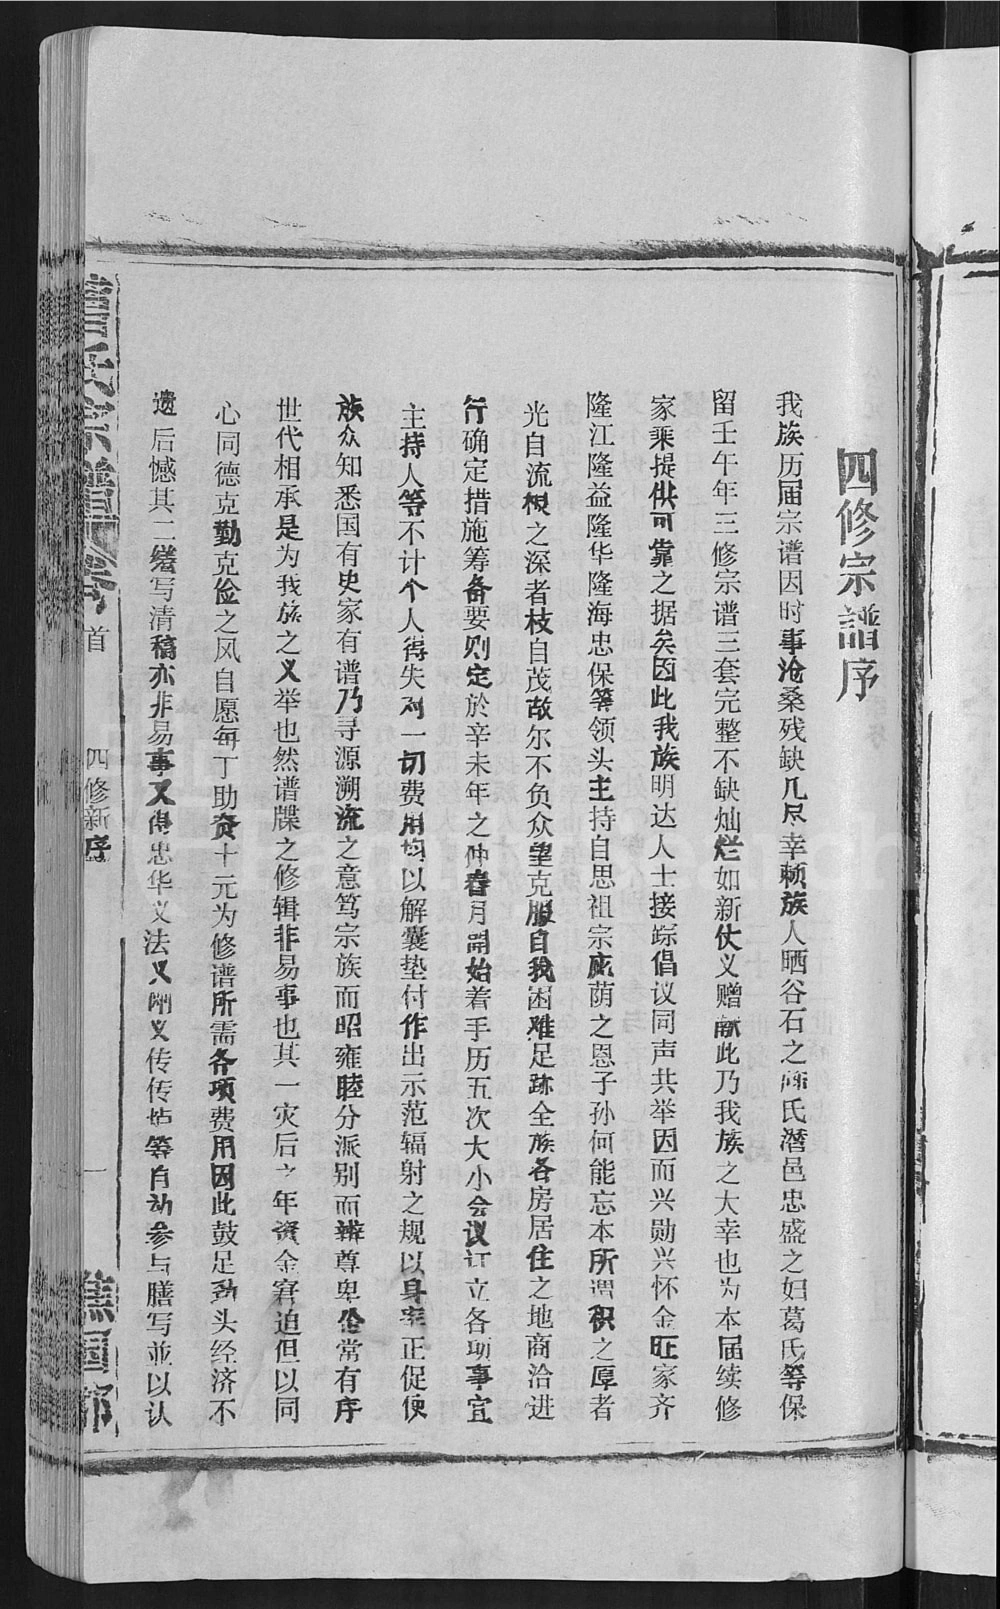 四修宗譜序
我族历届宗谱因时事沧桑残缺几尽幸赖族人晒谷石之商氏潛邑忠盛之妇葛氏等保
留壬午年三修宗谱三套完整不缺灿烂如新仗义赠献此乃我族之大幸也为本届续修
家乘提供可靠之据矣因此我族明达人士接踪倡议同声共举因而兴勋兴怀金旺家齐
隆江隆益隆华隆海忠保等领头主持自思祖宗庇荫之恩子孙何能忘本所谓积之厚者
光自流根之深者枝自茂故尔不负众望克服自我困难足跡全族各房居住之地商洽进
行确定措施筹备要则定於辛未年之仲春月開始着手历五次大小会议订立各项事宜
主持人等不计个人得失对一切费用均以解囊垫付作出示范辐射之规以身率正促使
族众知悉国有史家有谱乃寻源溯流之意笃宗族而昭雍睦分派别而辨尊卑伦常有序
世代相承是为我族之义举也然谱牒之修辑非易事也其一灾后之年资金窘迫但以同
心同德克勤克俭之风自愿每丁助资十元为修谱所需各项费用因此鼓足劲头经济不
遗后憾其二缮写清稿亦非易事又得忠华义法义刚义传传姑等自动参与膳写並以认
氏宗譜
首
四修新序
一
譙國郡